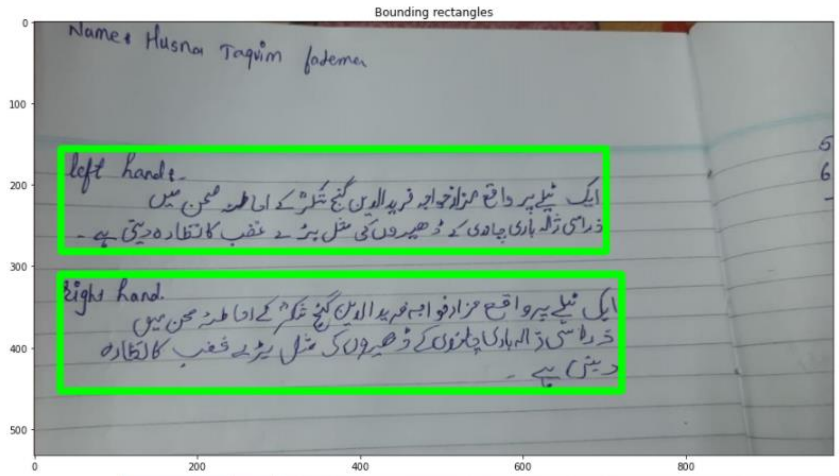 Bounding rectangles
0
Name: Husna Taqvim fadema
100
5
left hand:-
6
200
ایک ٹیلے پر واقع مزار خواجہ فرید الدین گنج شکرؒ کے احاطہ صحن میں
ذرا سی ژالہ باری چاندی کے ڈھیروں کی مثل بڑے غضب کا نظارہ دیتی ہے -
300
right hand.
ایک ٹیلے پر واقع مزار خواجہ فرید الدین گنج شکرؒ کے احاطہ صحن میں
ذرا سی ژالہ باری چاندی کے ڈھیروں کی مثل بڑے غضب کا نظارہ
400
دیتی ہے -
500
0 200 400 600 800